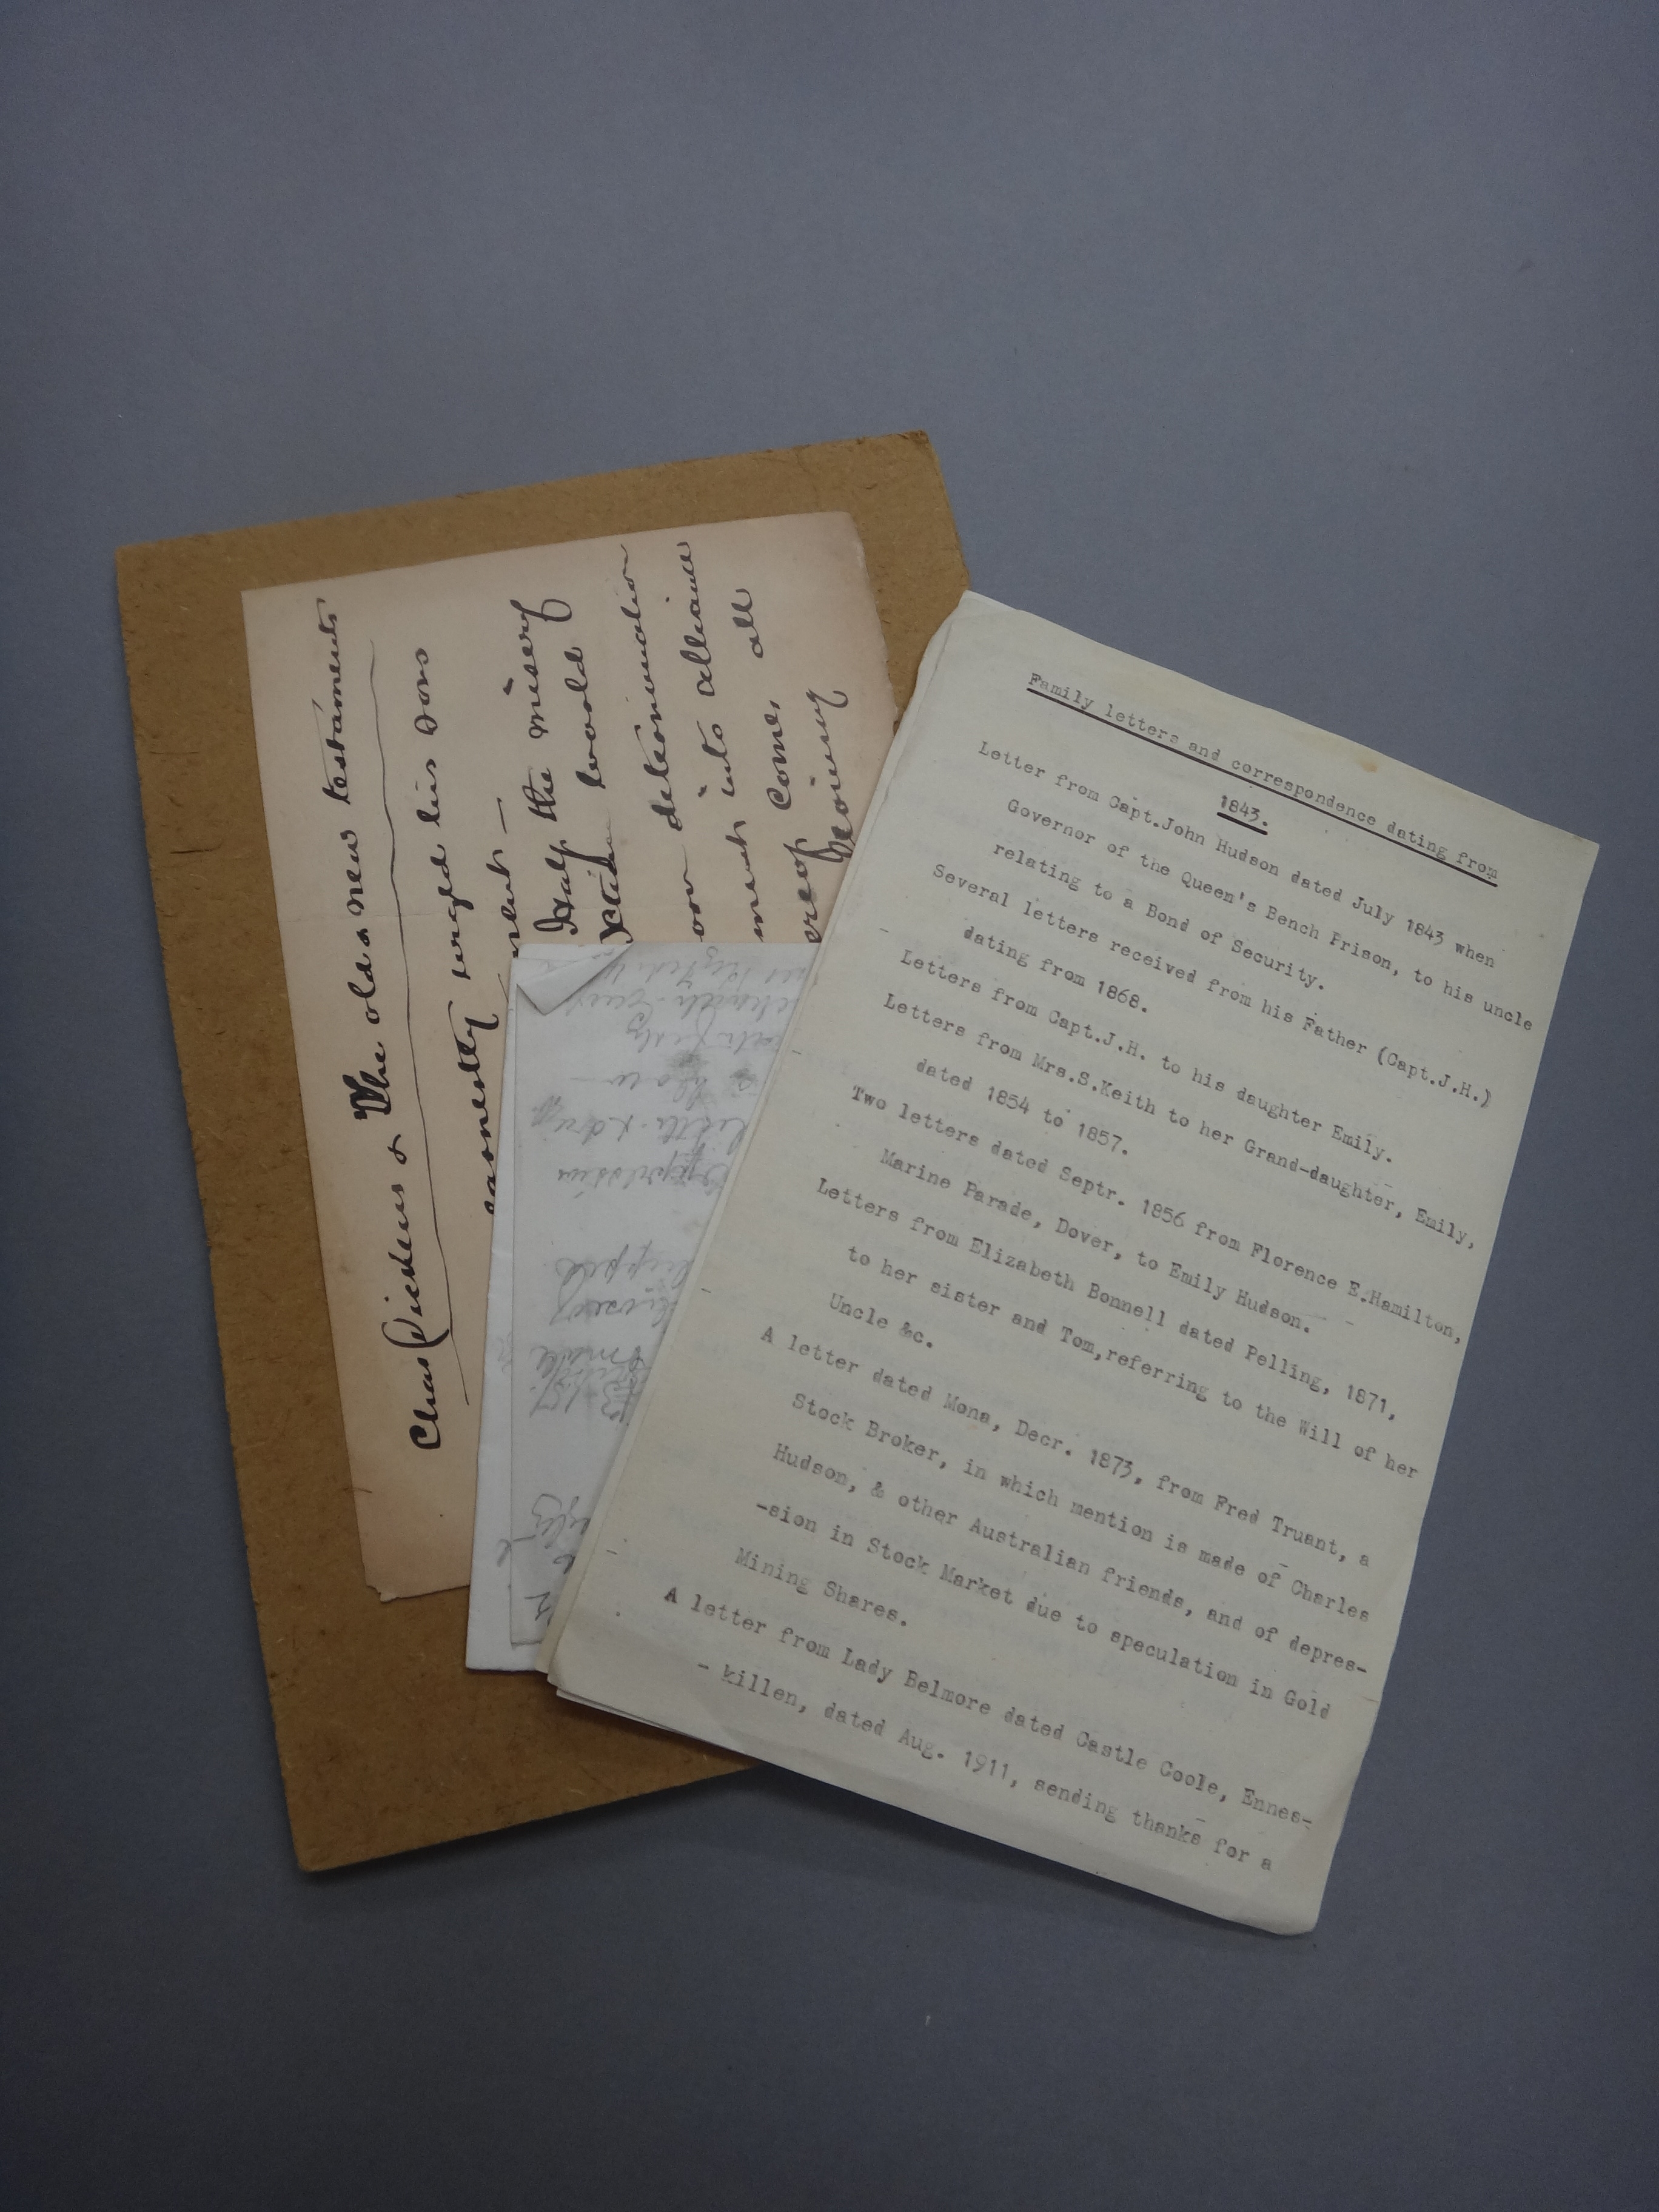 Family letters and correspondence dating from
1843.
Letter from Capt.John Hudson dated July 1843 when
Governor of the Queen's Bench Prison, to his uncle
relating to a Bond of Security.
Several letters received from his Father (Capt.J.H.)
dating from 1868.
Letters from Capt.J.H. to his daughter Emily.
Letters from Mrs.S.Keith to her Grand-daughter, Emily,
dated 1854 to 1857.
Two letters dated Septr. 1856 from Florence E.Hamilton,
Marine Parade, Dover, to Emily Hudson.
Letters from Elizabeth Bonnell dated Pelling, 1871,
to her sister and Tom,referring to the Will of her
Uncle &c.
A letter dated Mona, Decr. 1873, from Fred Truant, a
Stock Broker, in which mention is made of Charles
Hudson, & other Australian friends, and of depres-
-sion in Stock Market due to speculation in Gold
Mining Shares.
A letter from Lady Belmore dated Castle Coole, Ennes-
- killen, dated Aug. 1911, sending thanks for a
Chas Dickens & The old & new testaments
earnestly urged his sons
Half the misery
would
determination
into alliance
come, all